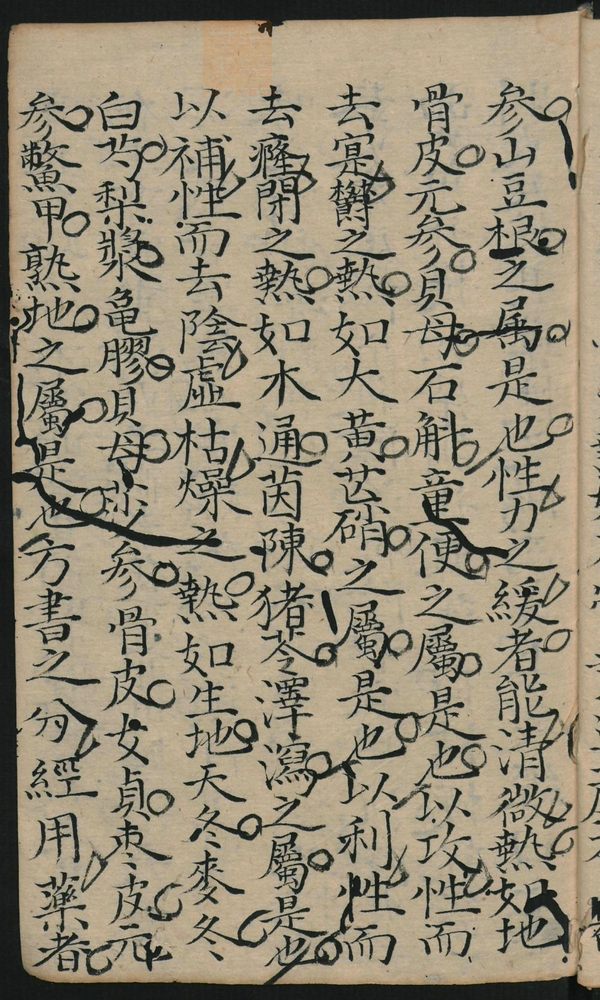 参山豆根之属是也性力之緩者能清微熱如地
骨皮元参貝母石斛童便之屬是也以攻性而
去寔欝之熱如大黄芒硝之屬是也以利性而
去癃閉之熱如木通茵陳猪苓澤瀉之屬是也
以補性而去陰虚枯燥之熱如生地天冬麥冬
白芍梨漿亀膠貝母沙参骨皮女貞枣皮元
参鱉甲熟地之屬是也方書之分經用藥者